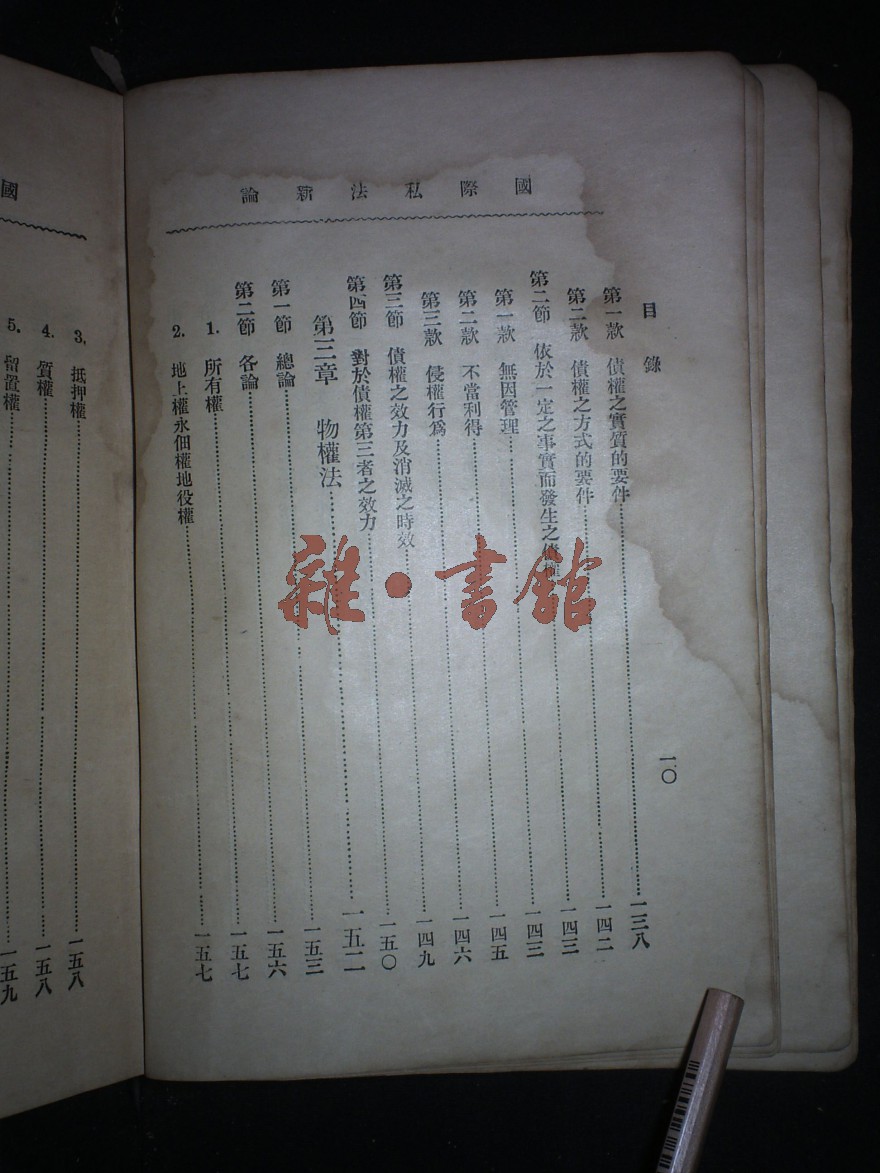 國際私法新論
目錄 一〇
第一款 債權之實質的要件……一三八
第二款 債權之方式的要件……一四二
第二節 依於一定之事實而發生之債權……一四三
第一款 無因管理……一四三
第二款 不當利得……一四五
第三款 侵權行爲……一四六
第三節 債權之效力及消滅之時效……一四九
第四節 對於債權第三者之效力……一五〇
第三章 物權法……一五二
第一節 總論……一五三
第二節 各論……一五六
1. 所有權……一五七
2. 地上權永佃權地役權……一五七
國
3. 抵押權……一五八
4. 質權……一五八
5. 留置權……一五九
雜·書館